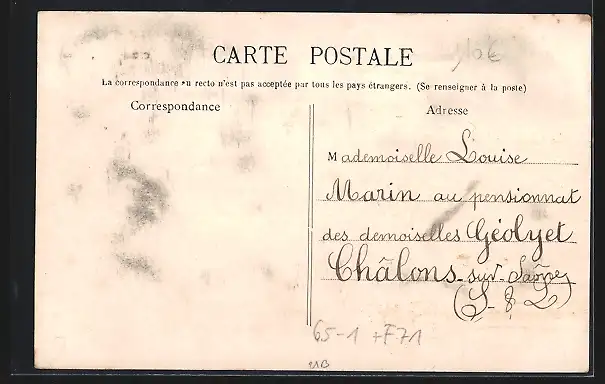 CARTE POSTALE
La correspondance au recto n'est pas acceptée par tous les pays étrangers. (Se renseigner à la poste)
Correspondance
Adresse
Mademoiselle Louise
Marin au pensionnat
des demoiselles Géolyet
Châlons-sur-Saône
(S-&L)
65-1 +F71